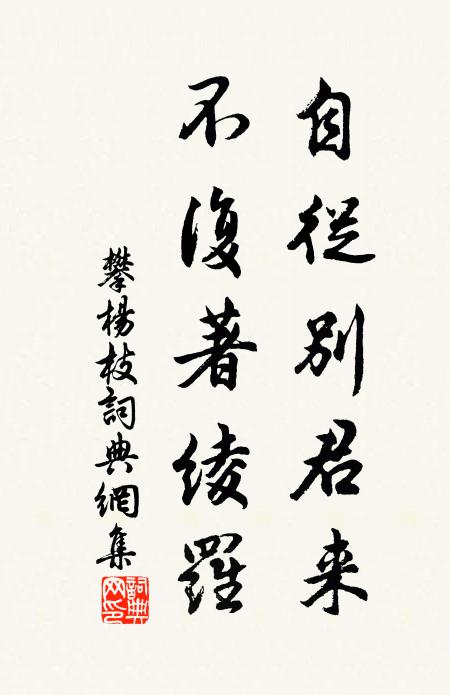 自從别君来
不復著绫羅
攀楊枝詞典網集
詞典
网印